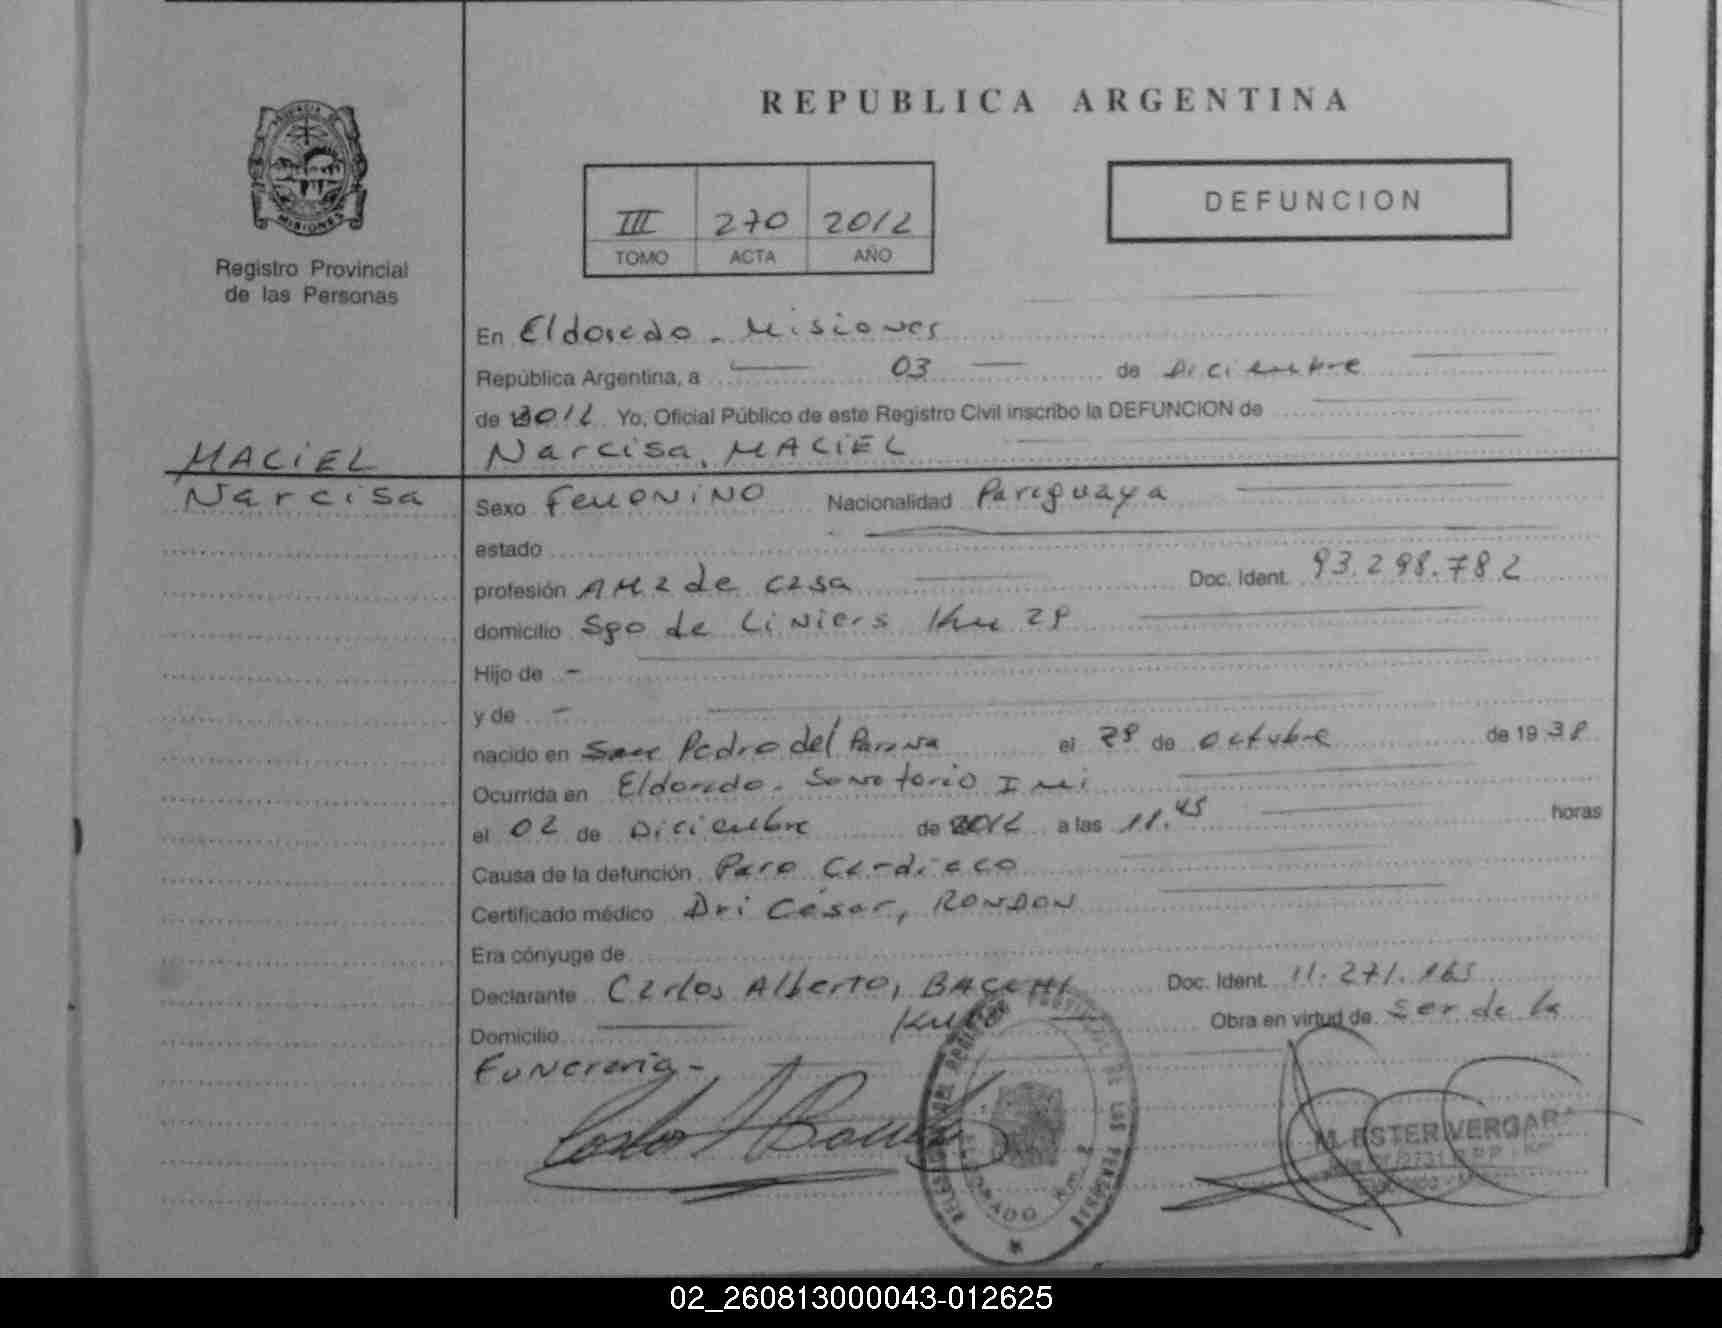 REPUBLICA ARGENTINA
MISIONES
Registro Provincial
de las Personas
III 270 2012
TOMO ACTA AÑO
DEFUNCION
En Eldorado - Misiones
República Argentina, a 03 de Diciembre
de 2012 Yo, Oficial Público de este Registro Civil inscribo la DEFUNCION de
Narcisa, MACIEL
MACIEL
Narcisa
Sexo Femenino Nacionalidad Paraguaya
estado
profesión AMa de casa Doc. Ident. 93.298.782
domicilio Sgo de Liniers Km 28
Hijo de -
y de -
nacido en San Pedro del Parana el 28 de octubre de 1938
Ocurrida en Eldorado. Sanatorio
el 02 de Diciembre de 2012 a las 11.45 horas
Causa de la defunción Paro Cardiaco
Certificado médico Dr: César, RONDON
Era cónyuge de
Declarante Carlos Alberto, Doc. Ident. 11.271.165
Domicilio Obra en virtud de Ser de la
Funeraria -
ELDORADO
M. ESTER VERGARA
02_260813000043-012625